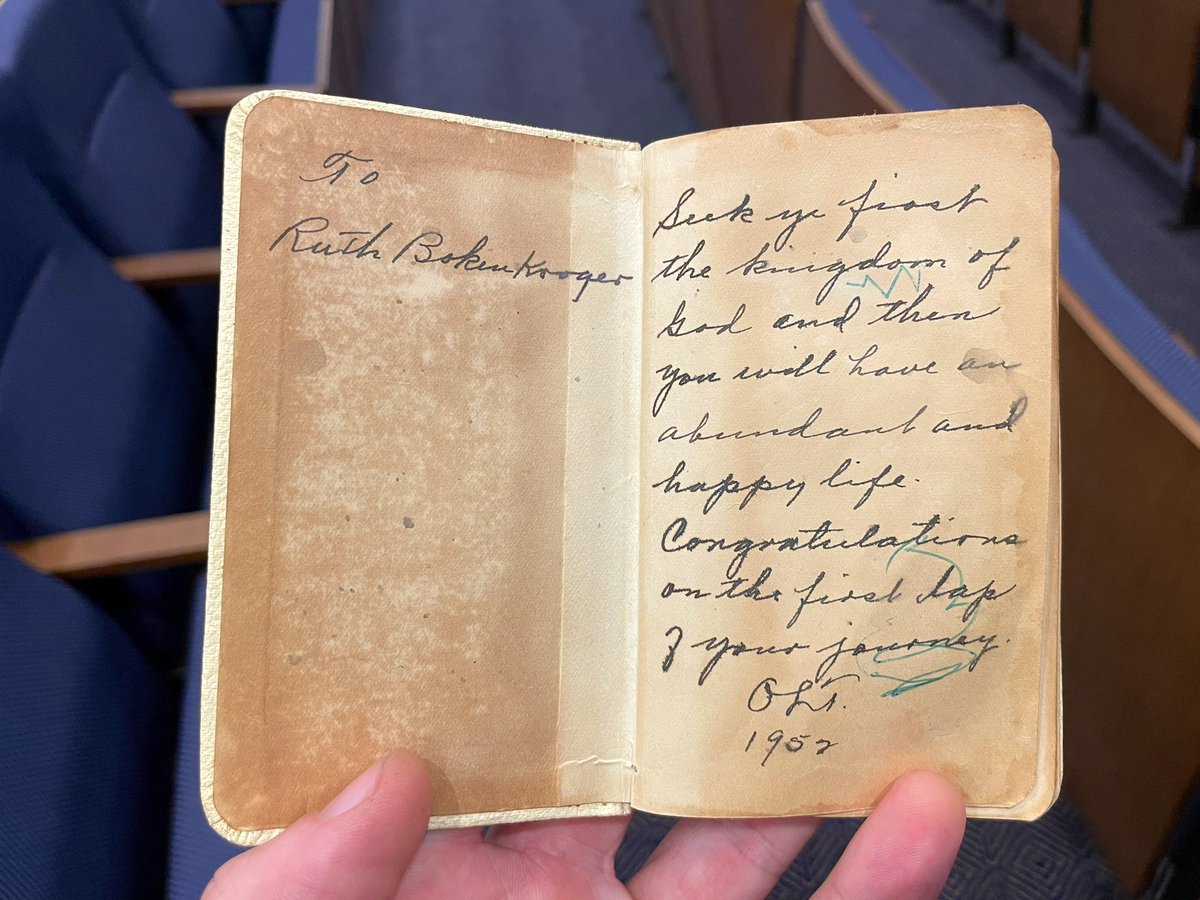 To
Ruth Bokenkroger
Seek ye first
the kingdom of
God and then
you will have an
abundant and
happy life.
Congratulations
on the first lap
of your journey.
O.L.T.
1952